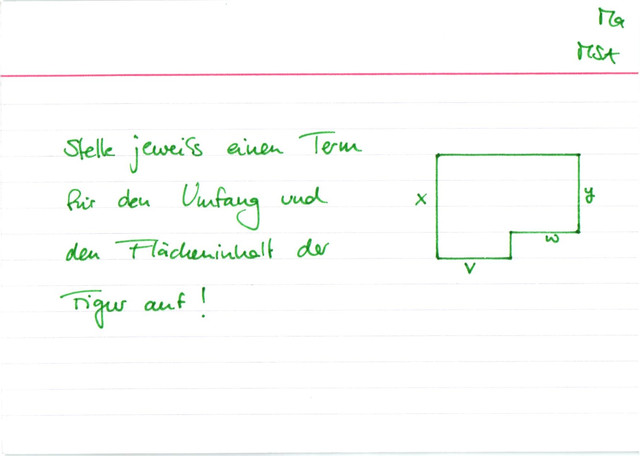 Ma
MSA
Stelle jeweils einen Term
für den Umfang und
den Flächeninhalt der
Figur auf!
x
y
w
v